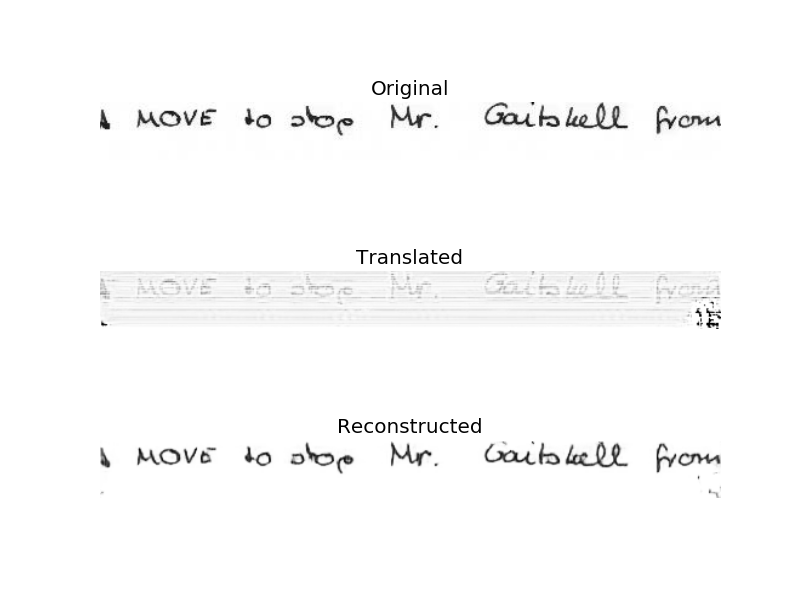 Original
A MOVE to stop Mr. Gaitskell from
Translated
A MOVE to stop Mr. Gaitskell from
Reconstructed
A MOVE to stop Mr. Gaitskell from